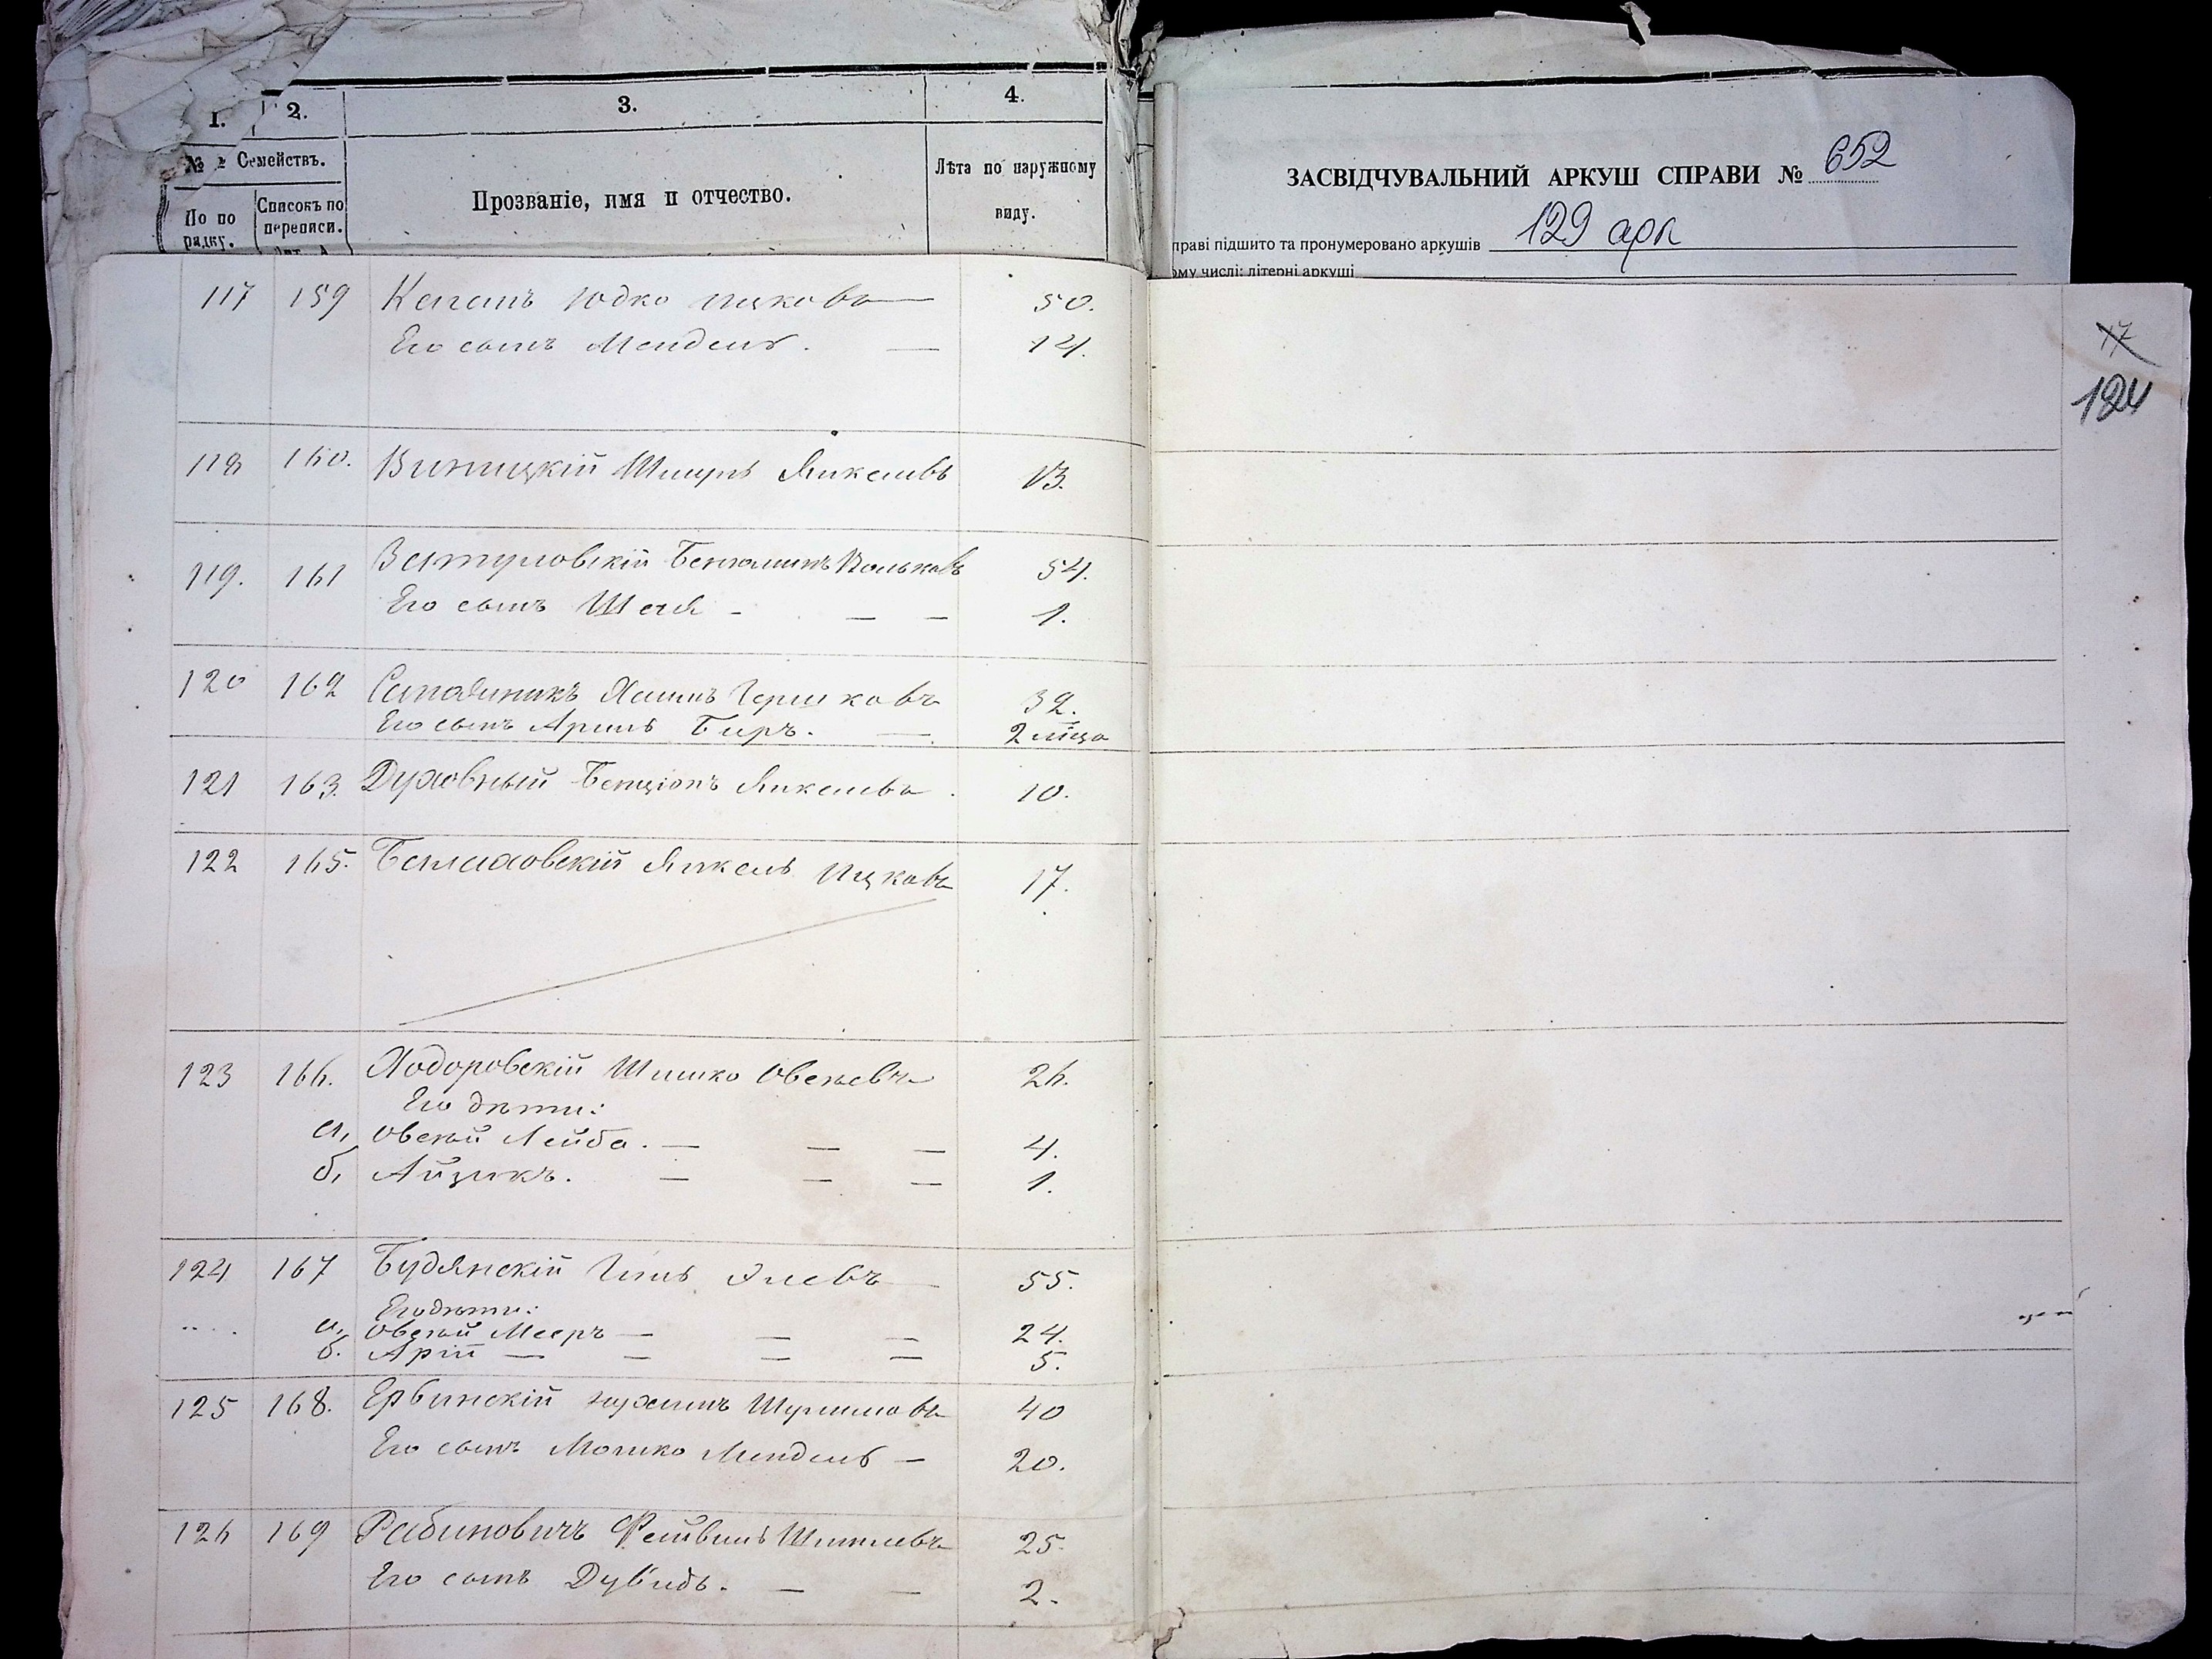 1. 2. 3. 4.
№ Семействъ.
По по рядку.
Списокъ по переписи.
Прозваніе, имя и отчество.
Лѣта по наружному виду.
ЗАСВІДЧУВАЛЬНИЙ АРКУШ СПРАВИ № 652
праві підшито та пронумеровано аркушів 129 арк
ому числі: літерні аркуші
17
124
117 159 Каганъ Юдко Ицковъ 50.
Его сынъ Мендель. 14.
118 160. Виницкій Шмуль Янкелевъ 13.
119. 161 Бенюминъ Вольковъ 54.
Его сынъ Шая 1.
120 162 Хаимъ Гершковъ 32.
Его сынъ Аронъ Беръ. 2 мѣца
121 163. Духовный Бенціонъ Янкелевъ 10.
122 165. Янкель Ицковъ 17.
123 166. Ходоровскій Шимко Овсѣевъ 26.
Его дѣти:
а, Овсѣй Лейба. 4.
б, Айзикъ. 1.
124 167 Будянскій Элевъ 55.
Его дѣти:
а, Овсѣй Мееръ 24.
б. Арій 5.
125 168. Нухимъ Шулимовъ 40
Его сынъ Мошко Мендель 20.
126 169 Рабиновичъ Фейвель Шмулевъ 25.
Его сынъ Дувидъ. 2.